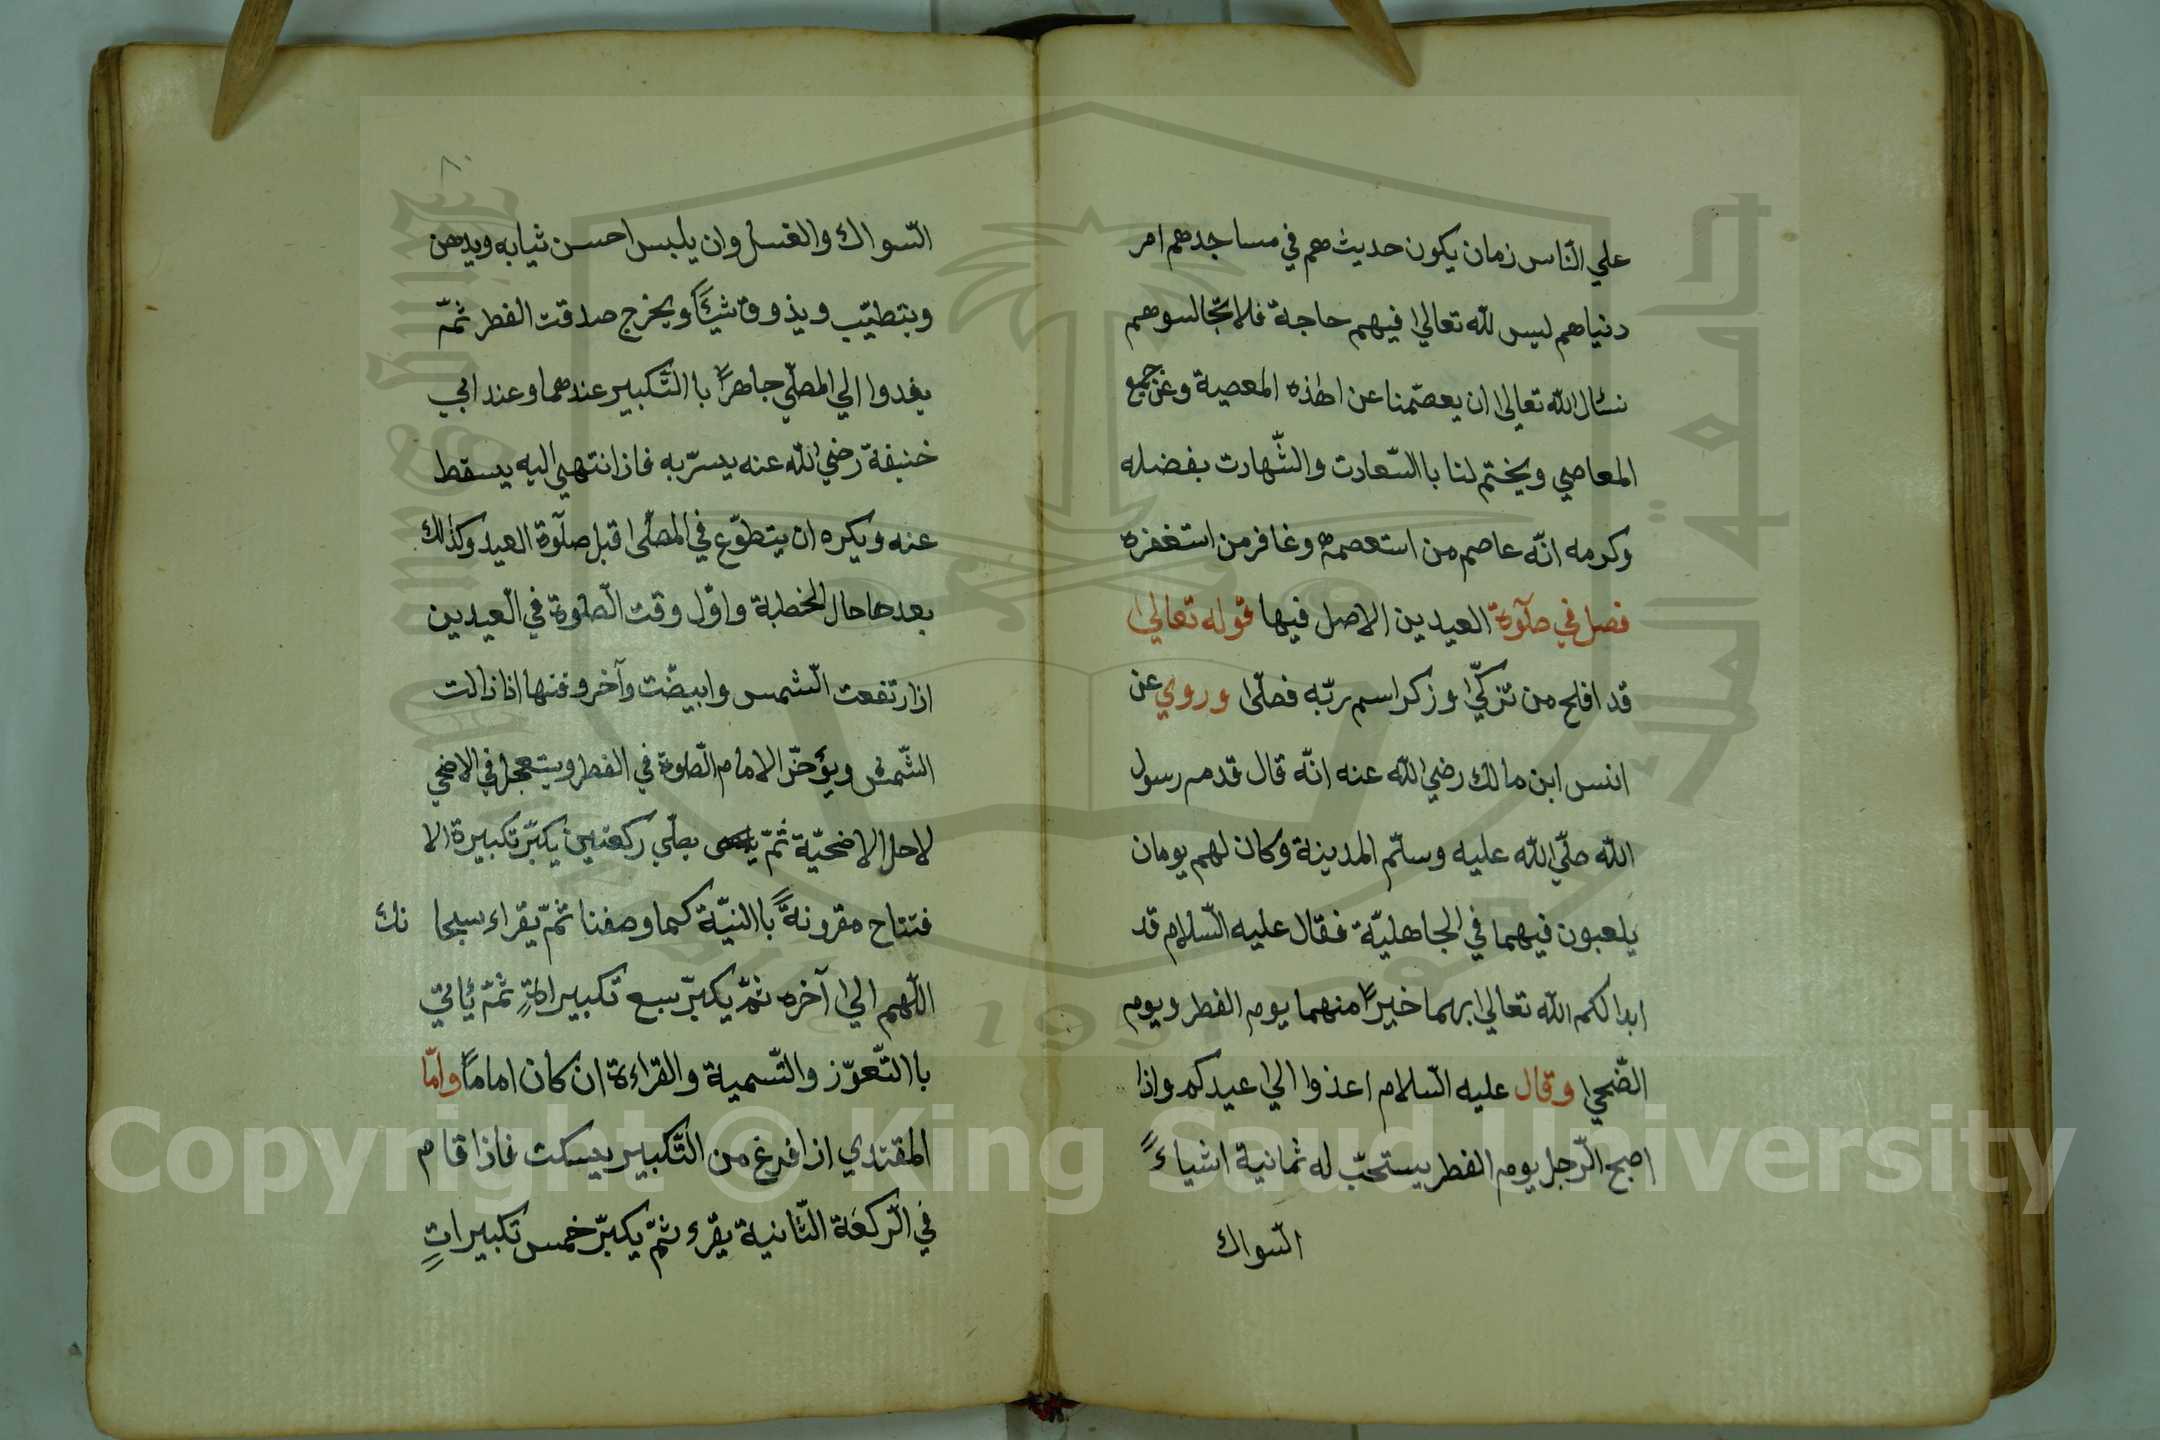 علي النّاس زمان يكون حديث هم في مساجدهم امر
دنياهم ليس للّه تعالي فيهم حاجة فلا تجالسوهم
نسئال اللّه تعالي ان يعصّمنا عن اهذه المعصية وعن جميع
المعاصي ويختم لنا باالسّعادت والشّهادت بفضله
وكرمه انّه عاصم من استعصمه وغافر من استغفره
فصل في صلٓوة العيدين الاصل فيها قوله تعالي
قد افلح من تزكّي وزكر اسم ربّه فصلّا وروي عن
انس ابن مالك رضي اللّه عنه انّه قال قدم رسول
اللّه صلّي اللّه عليه وسلّم المدينة وكان لهم يومان
يلعبون فيهما في الجاهليّة فقال عليه السّلام قد
ابدالكم اللّه تعالي ابهما خيرًا منهما يوم الفطر ويوم
الضّحي وقال عليه السّلام اعذوا الي عيدكم واذا
اصبح الرّجل يوم الفطر يستحبّ له ثمانية اشياءً
السّواك
٨٠
السّواك والغسل وان يلبس احسن ثيابه ويدهن
ويتطيّب ويذوق شيئًا ويخرج صدقت الفطر ثمّ
يغدوا الي المصلّي جاهرًا باالتّكبير عندهما وعند ابي
خنيفة رضي اللّه عنه يسرّ به فاذا انتهي اليه يسقط
عنه ويكره ان يتطوّع في المصلّا قبل صلٓوة العيد وكذالك
بعدها حال الخطبة واوّل وقت الصّلوة في العيدين
اذا رتفعت الشّمس وابيضّت وآخر وقتها اذا زالت
الشّمس ويؤخّر الامام الصّلوة في الفطر ويتعجل في الاضحي
لاجل الاضحيّة ثمّ يصلّي ركعتين يكبّر تكبيرة الا
فتتاح مقرونةً باالنيّة كما وصفنا ثمّ يقراء سبحا نك
اللّهم الي آخره ثمّ يكبّر سبع تكبيراتٍ ثمّ يأتي
باالتّعوّز والتّسمية والقراءة ان كان امامًا وامّا
المقتدي اذا فرغ من التّكبير يسكت فاذا قام
في الرّكعة الثّانية يقرء ثمّ يكبّر خمس تكبيراتٍ
جامعة الملك سعود
King Saud University
1957
Copyright © King Saud University